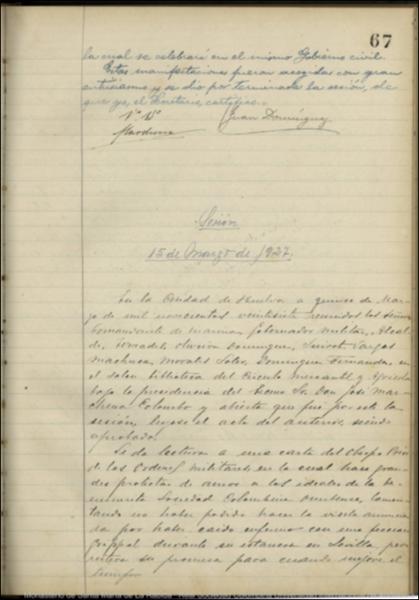 67
la cual se celebrará en el mismo Gobierno civil.
Estas manifestaciones fueron acogidas con gran
entusiasmo y se dio por terminada la sesión, de
que yo, el Secretario, certifico.
Vº Bº
Marchena
Juan Domínguez
Sesión
15 de Marzo de 1927.
En la Ciudad de Huelva a quince de Mar-
zo de mil novecientos veintisiete reunidos los Señores
Comandante de Marina, Gobernador Militar, Alcal-
de, Terrades, Oliveira Domínguez, Vargas
Machuca, Morales, Domínguez Fernández, en
el salón biblioteca del Círculo Mercantil y Agrícola
bajo la presidencia del Excmo Sr. Don José Mar-
chena Colombo y abierta que fué por este la
sesión, leyose el acta del anterior, siendo
aprobada.
Se da lectura a una carta del Obispo Prior
de las Ordenes Militares en la cual hace gran-
des protestas de amor a los ideales de la be-
nemérita Sociedad Colombina Onubense, lamen-
tando no haber podido hacer la visita anuncia-
da por haber caido enfermo con un proceso
grippal durante su estancia en Sevilla, y
reitera su promesa para cuando mejore el
tiempo.